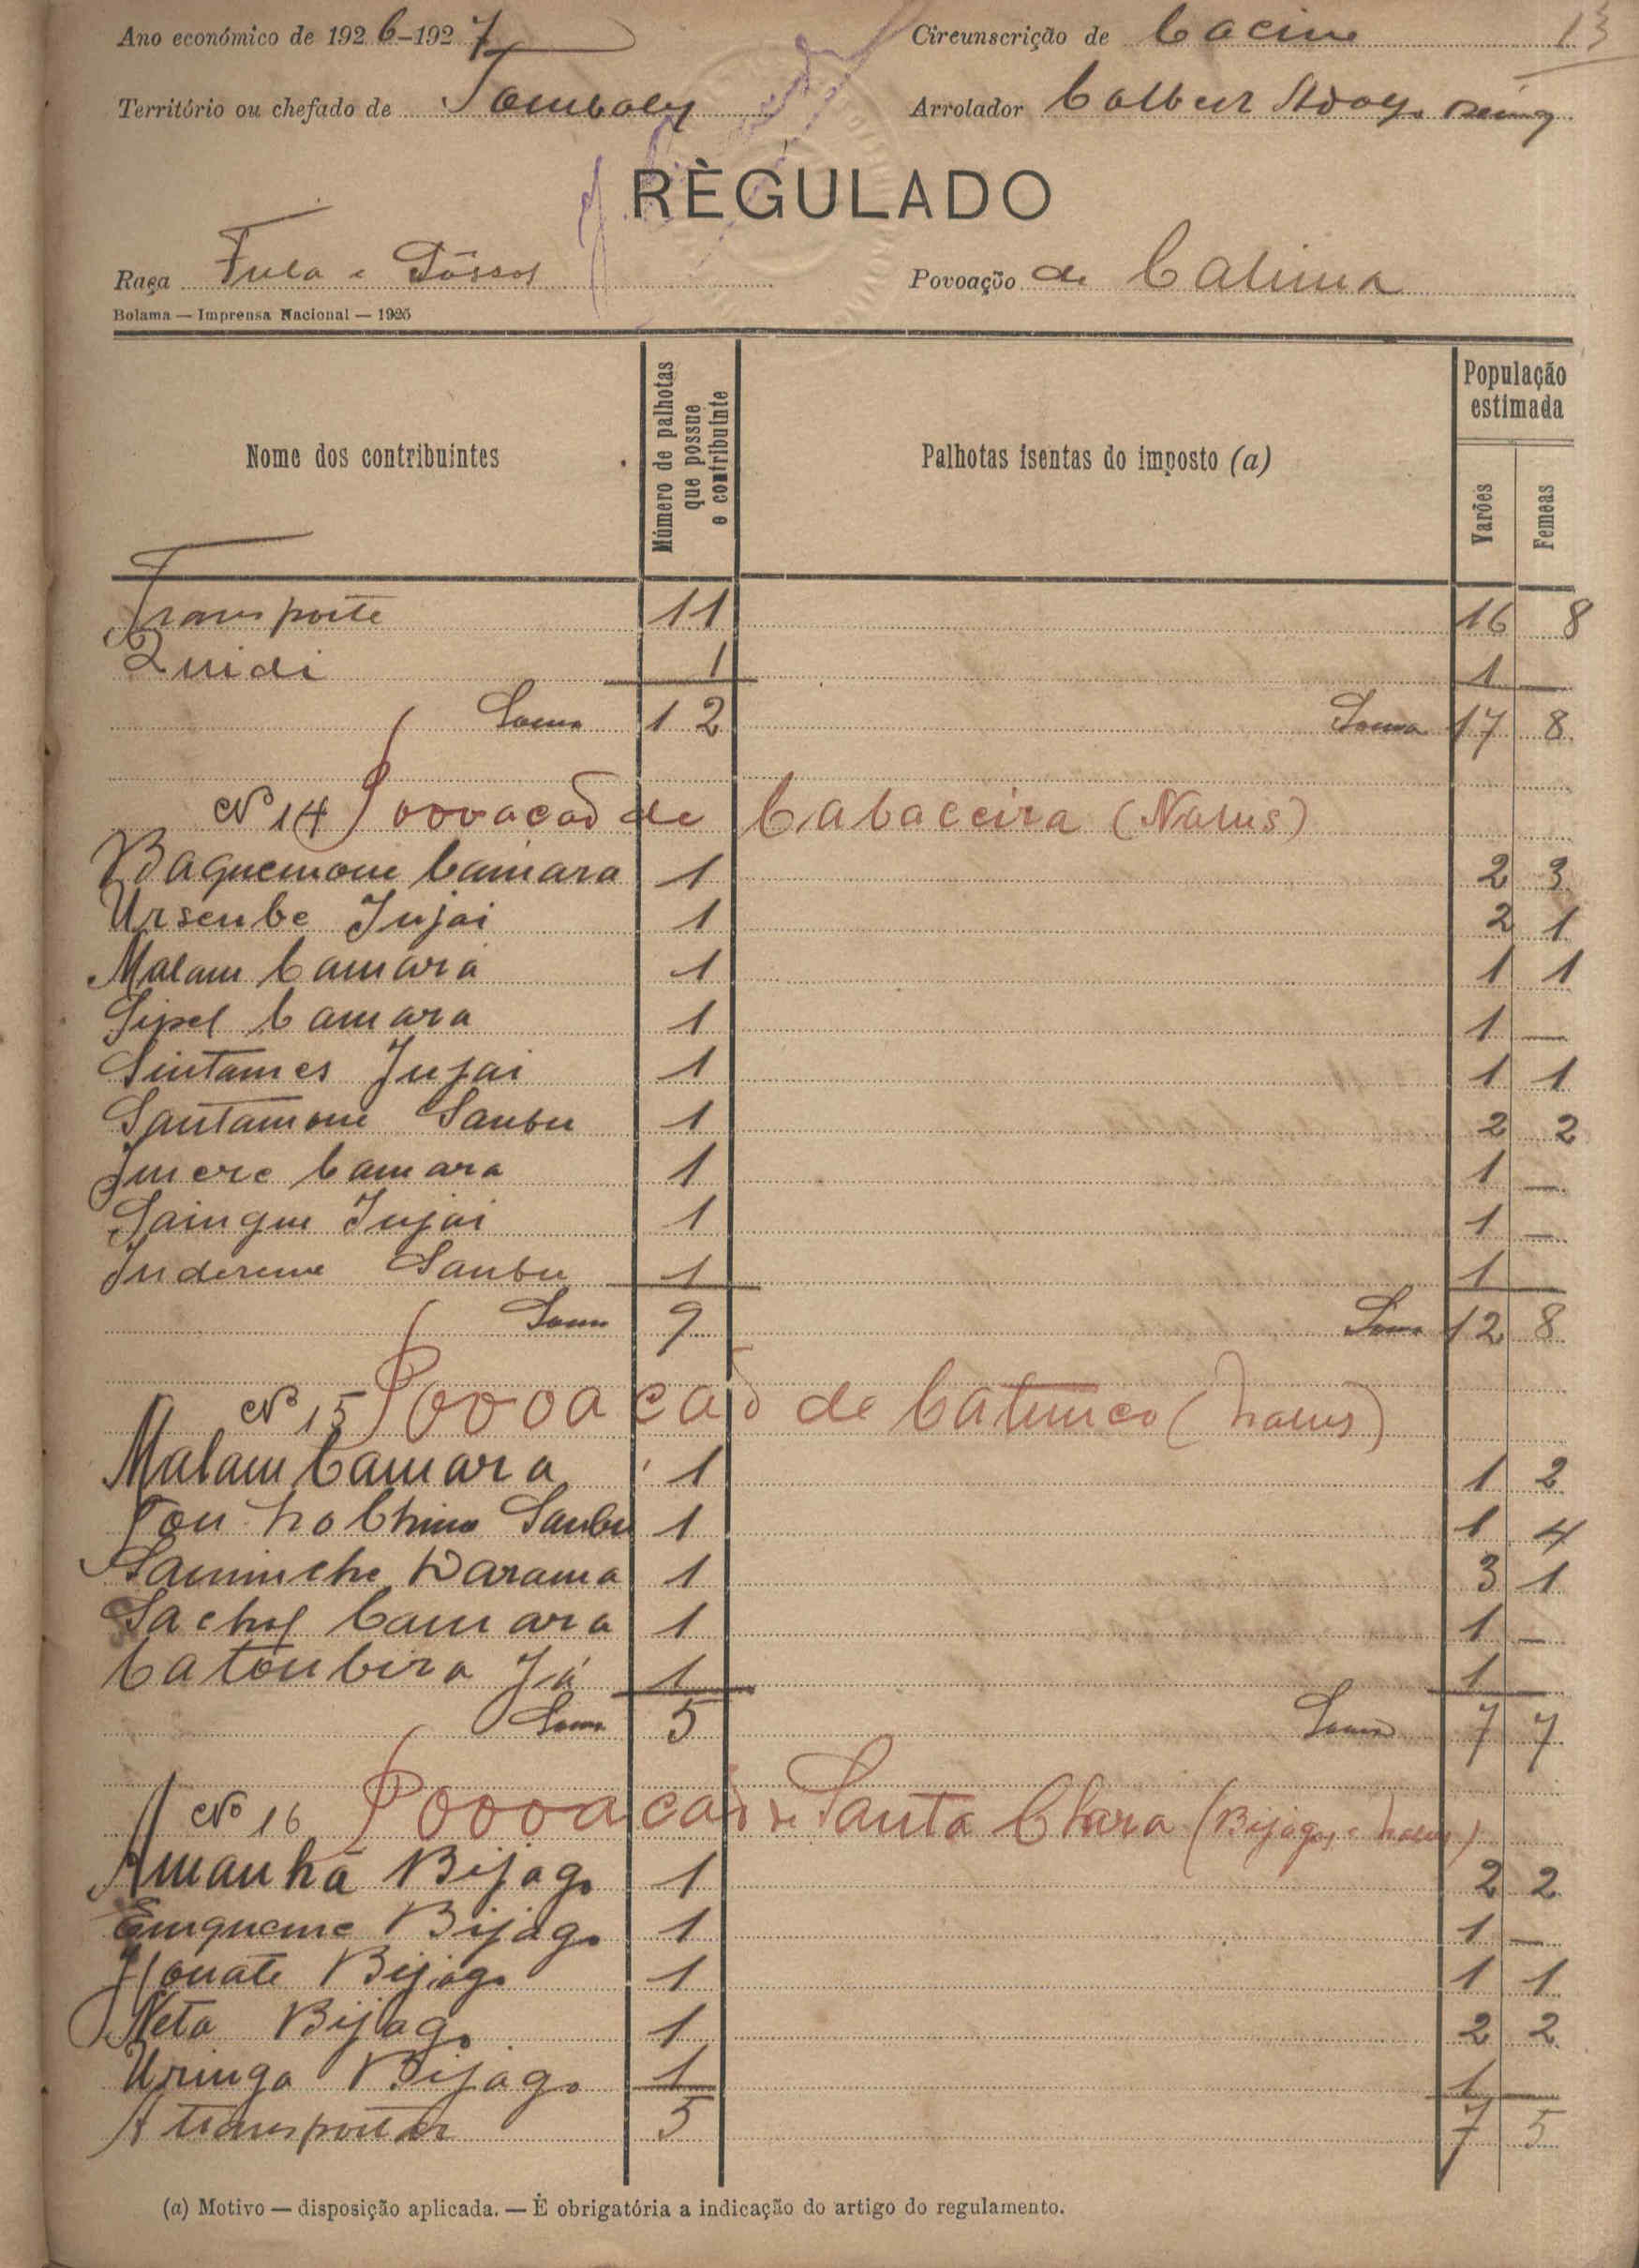 Ano económico de 1926-1927 Circunscrição de Cacine 13
Território ou chefado de Tombaly Arrolador
RÈGULADO
Raça Fula e Sôssos Povoação de Calima
Bolama — Imprensa Nacional — 1925
Nome dos contribuintes Número de palhotas que possue o contribuinte Palhotas isentas do imposto (a) População estimada
Varões Femeas
Transporte 11 16 8
Quidi 1 1 —
Soma 12 Soma 17 8
Nº 14 Povoacaõ de Cabaceira (Nalus)
Baquemone Camara 1 2 3
Urseube Jujai 1 2 1
Malam Camara 1 1 1
Sipel Camara 1 1 —
Sintames Jujai 1 1 1
Santamone Sanbu 1 2 2
Camara 1 1 —
Saingue Jujai 1 1 —
Sanbu 1 1 —
Soma 9 Soma 12 8
Nº 15 Povoacaõ de Catunco (Nalus)
Malam Camara 1 1 2
Sanbu 1 1 4
Darama 1 3 1
Camara 1 1 —
Catoubira Já 1 1 —
Soma 5 Soma 7 7
Nº 16 Povoacaõ de Santa Clara (Bijagos e Nalus)
Amanhã Bijago 1 2 2
Emqueme Bijago 1 1 —
Bijago 1 1 1
Neto Bijago 1 2 2
Uringa Bijago 1 1 —
A transportar 5 7 5
(a) Motivo — disposição aplicada. — É obrigatória a indicação do artigo do regulamento.